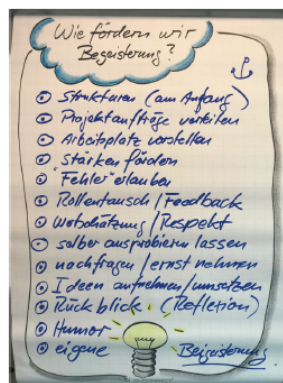 Wie fördern wir
Begeisterung?
Strukturen (am Anfang)
Projektaufträge verteilen
Arbeitsplatz vorstellen
Stärken fördern
Fehler erlauben
Rollentausch / Feedback
Wertschätzung / Respekt
selber ausprobieren lassen
nachfragen / ernst nehmen
Ideen aufnehmen / umsetzen
Rückblick (Refletion)
Humor
eigene Begeisterung